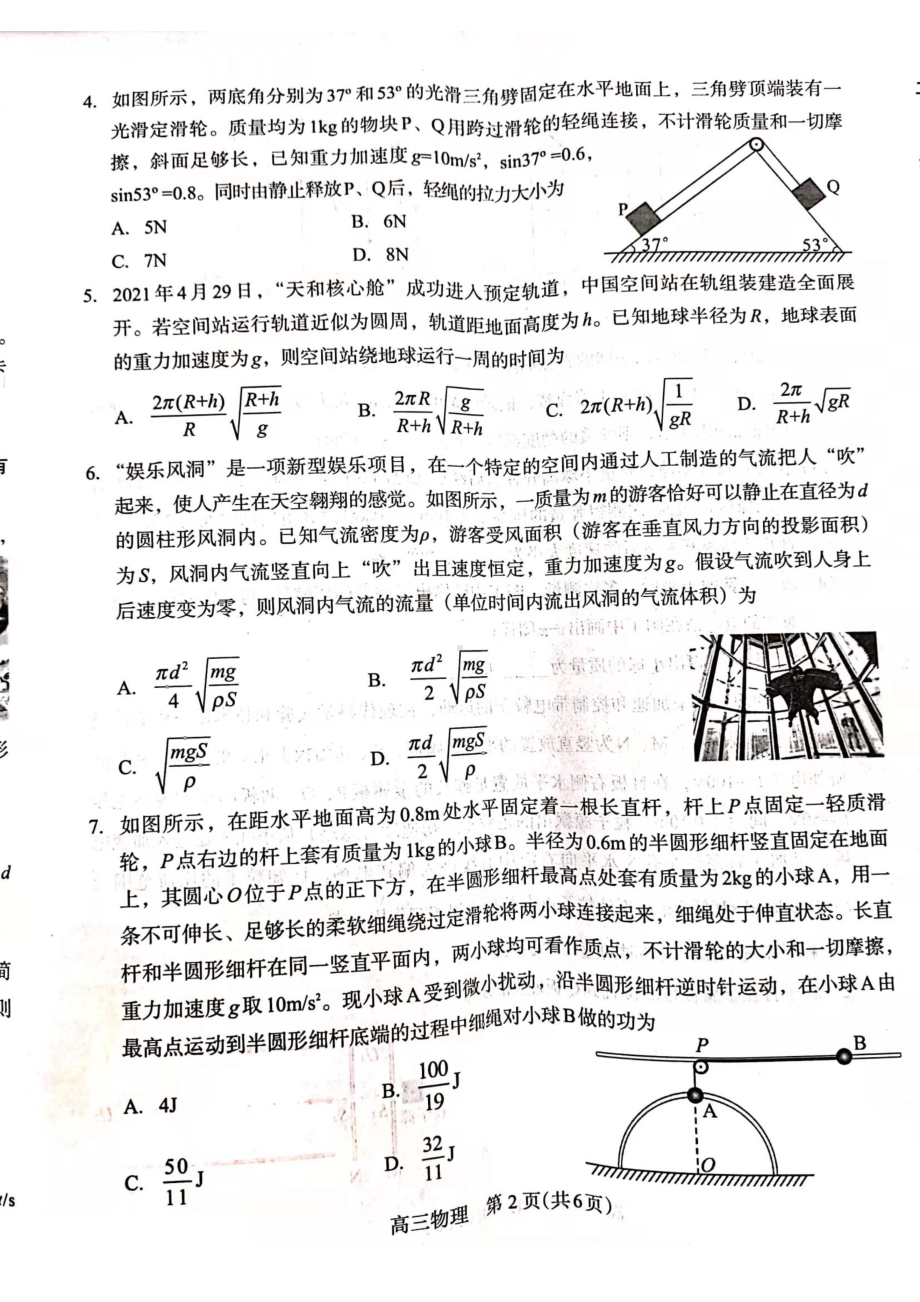 4. 如图所示，两底角分别为37°和53°的光滑三角劈固定在水平地面上，三角劈顶端装有一
光滑定滑轮。质量均为1kg的物块P、Q用跨过滑轮的轻绳连接，不计滑轮质量和一切摩
擦，斜面足够长，已知重力加速度g=10m/s²，sin37°=0.6，
sin53°=0.8。同时由静止释放P、Q后，轻绳的拉力大小为
A. 5N B. 6N
C. 7N D. 8N
P Q 37° 53°
5. 2021年4月29日，“天和核心舱”成功进入预定轨道，中国空间站在轨组装建造全面展
开。若空间站运行轨道近似为圆周，轨道距地面高度为h。已知地球半径为R，地球表面
的重力加速度为g，则空间站绕地球运行一周的时间为
A. 2π(R+h)/R √((R+h)/g) B. 2πR/(R+h) √(g/(R+h)) C. 2π(R+h)√(1/(gR)) D. 2π/(R+h) √(gR)
6. “娱乐风洞”是一项新型娱乐项目，在一个特定的空间内通过人工制造的气流把人“吹”
起来，使人产生在天空翱翔的感觉。如图所示，一质量为m的游客恰好可以静止在直径为d
的圆柱形风洞内。已知气流密度为ρ，游客受风面积（游客在垂直风力方向的投影面积）
为S，风洞内气流竖直向上“吹”出且速度恒定，重力加速度为g。假设气流吹到人身上
后速度变为零，则风洞内气流的流量（单位时间内流出风洞的气流体积）为
A. πd²/4 √(mg/(ρS)) B. πd²/2 √(mg/(ρS))
C. √(mgS/ρ) D. πd/2 √(mgS/ρ)
7. 如图所示，在距水平地面高为0.8m处水平固定着一根长直杆，杆上P点固定一轻质滑
轮，P点右边的杆上套有质量为1kg的小球B。半径为0.6m的半圆形细杆竖直固定在地面
上，其圆心O位于P点的正下方，在半圆形细杆最高点处套有质量为2kg的小球A，用一
条不可伸长、足够长的柔软细绳绕过定滑轮将两小球连接起来，细绳处于伸直状态。长直
杆和半圆形细杆在同一竖直平面内，两小球均可看作质点，不计滑轮的大小和一切摩擦，
重力加速度g取10m/s²。现小球A受到微小扰动，沿半圆形细杆逆时针运动，在小球A由
最高点运动到半圆形细杆底端的过程中细绳对小球B做的功为
A. 4J B. 100/19 J
C. 50/11 J D. 32/11 J
P B A O
高三物理 第2页(共6页)